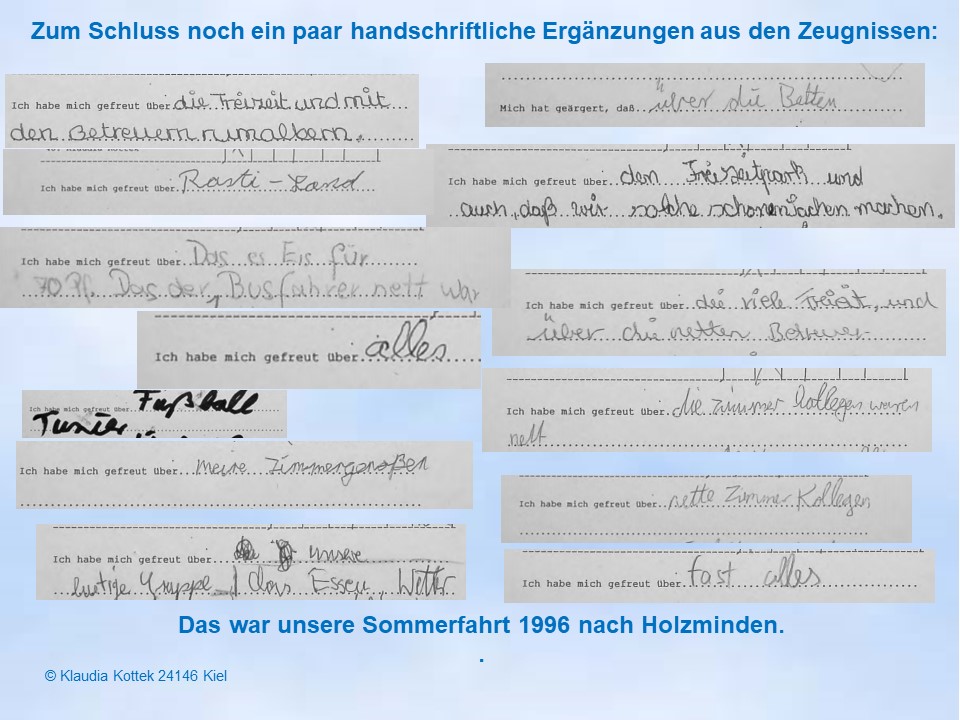 Zum Schluss noch ein paar handschriftliche Ergänzungen aus den Zeugnissen:
Ich habe mich gefreut über die Freizeit und mit
den Betreuern rumalbern.
Ich habe mich gefreut über Rasti-Land
Ich habe mich gefreut über Das es Eis für
70 Pf. Das der Busfahrer nett war
Ich habe mich gefreut über alles
Ich habe mich gefreut über Fußball
Tunier
Ich habe mich gefreut über meine Zimmergenoßen
Ich habe mich gefreut über unsere
lustige Gruppe das Essen, Wetter
Mich hat geärgert, daß über die Betten
Ich habe mich gefreut über den Freizeitpark und
auch, daß wir solche schönen machen.
Ich habe mich gefreut über die viele und
über die netten Betreuer
Ich habe mich gefreut über die zimmer kollegen waren
nett
Ich habe mich gefreut über nette Zimmer Kollegen
Ich habe mich gefreut über fast alles
Das war unsere Sommerfahrt 1996 nach Holzminden.
.
© Klaudia Kottek 24146 Kiel